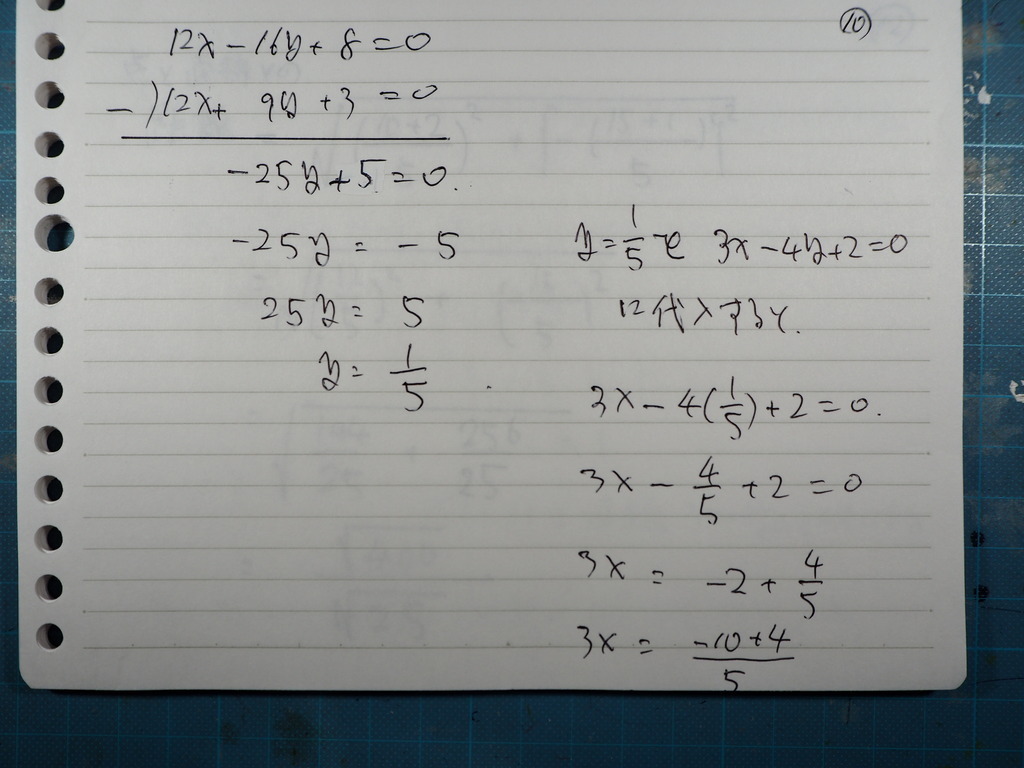 ⑩
12x - 16y + 8 = 0
-)12x + 9y + 3 = 0
-25y + 5 = 0.
-25y = -5
25y = 5
y = 1/5
y = 1/5 を 3x - 4y + 2 = 0
に代入すると.
3x - 4(1/5) + 2 = 0.
3x - 4/5 + 2 = 0
3x = -2 + 4/5
3x = (-10+4)/5